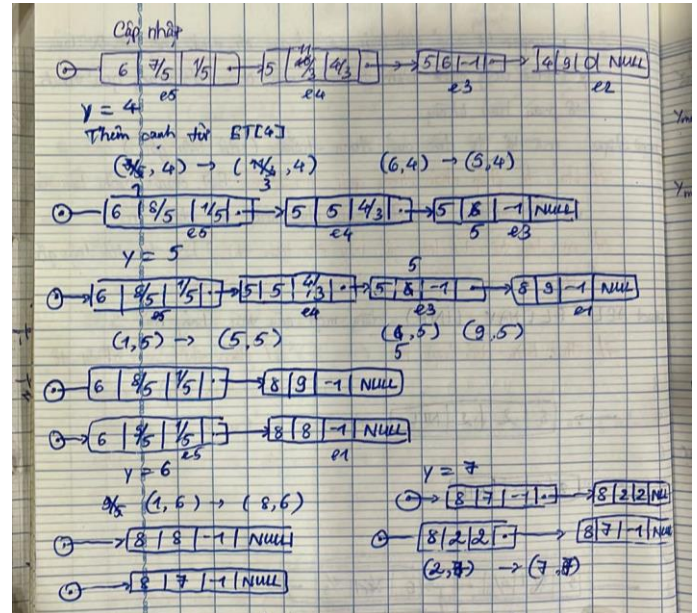 Cập nhập
6 | 7/5 | 1/5 | 5 | 11/3 | 4/3 | 5 | 6 | -1 | 4 | 9 | 0 | NULL
e5 e4 e3 e2
y = 4
Thêm cạnh từ ET[4]
, 4) → ( , 4) (6,4) → (5,4)
6 | 8/5 | 1/5 | 5 | 5 | 4/3 | 5 | | -1 | NULL
e5 e4 5 e3
y = 5
5
6 | 8/5 | 1/5 | 5 | 5 | 4/3 | 5 | | -1 | 8 | 9 | -1 | NULL
e5 e4 e3 e1
(1,5) → (5,5) ( ,5) (9,5)
5
6 | 8/5 | 1/5 | 8 | 9 | -1 | NULL
6 | 9/5 | 1/5 | 8 | 8 | -1 | NULL
e5 e1
y = 6
9/5 (1,6) → (8,6)
8 | 8 | -1 | NULL
8 | 7 | -1 | NULL
y = 7
8 | 7 | -1 | 8 | 2 | 2 | NU
8 | 2 | 2 | 8 | 7 | -1 | NU
(2,7) → (7,7)